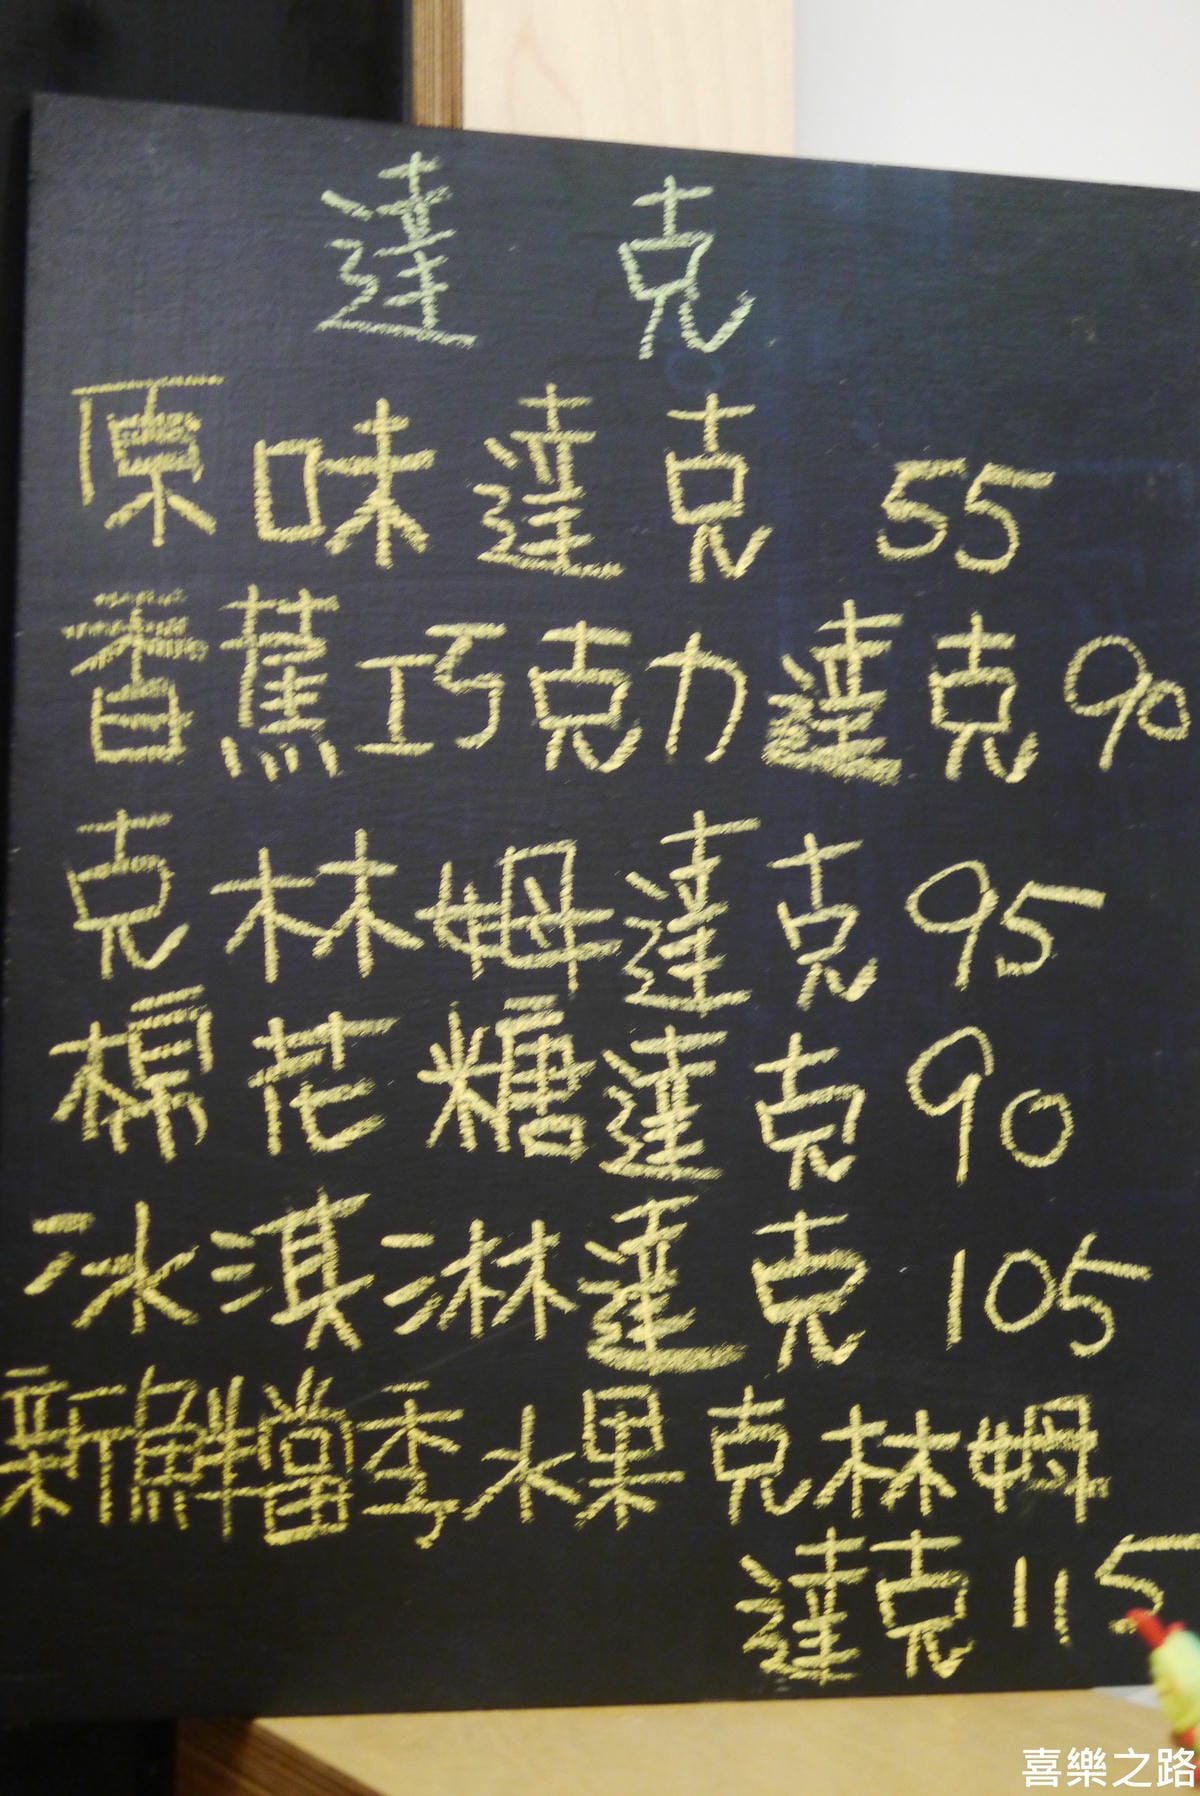 達克
原味達克 55
香蕉巧克力達克 90
克林姆達克 95
棉花糖達克 90
冰淇淋達克 105
新鮮當季水果克林姆
達克 115
喜樂之路